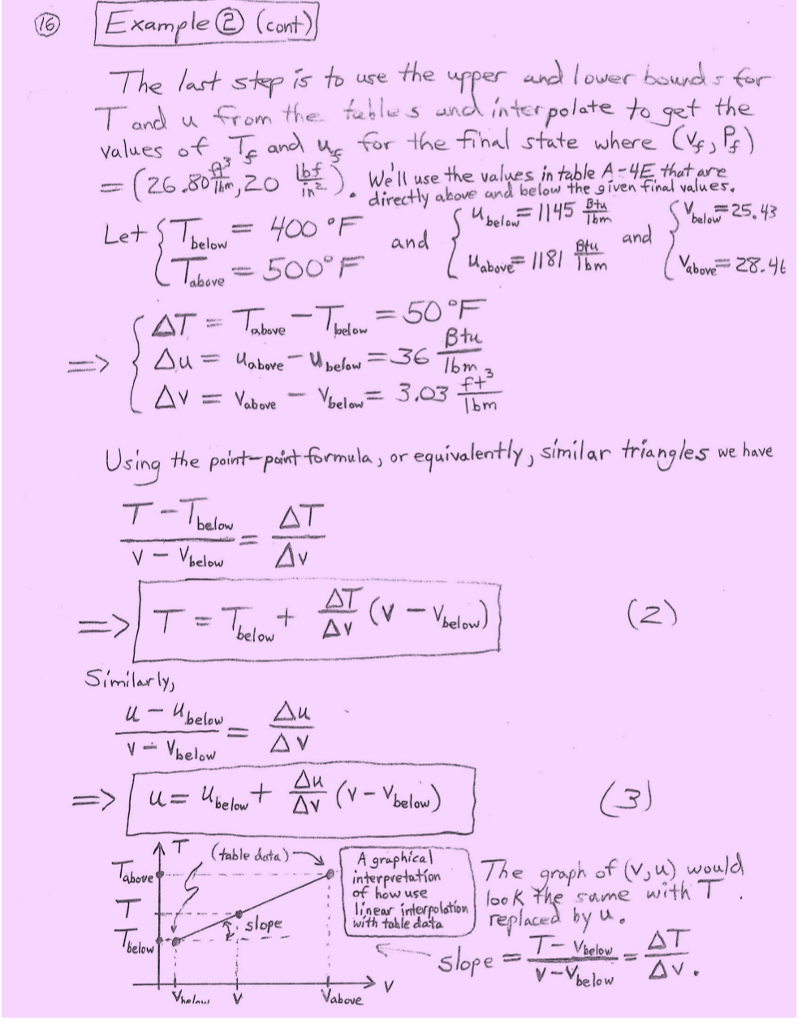 16 Example ② (cont)
The last step is to use the upper and lower bounds for
T and u from the tables and interpolate to get the
values of T_f and u_f for the final state where (v_f, P_f)
= (26.80 ft³/lbm, 20 lbf/in²). We'll use the values in table A-4E that are
directly above and below the given final values.
Let { T_below = 400 °F and { u_below = 1145 Btu/lbm and { v_below = 25.43
T_above = 500 °F u_above = 1181 Btu/lbm v_above = 28.46
=> { ΔT = T_above - T_below = 50 °F
Δu = u_above - u_below = 36 Btu/lbm
Δv = v_above - v_below = 3.03 ft³/lbm
Using the point-point formula, or equivalently, similar triangles we have
(T - T_below)/(v - v_below) = ΔT/Δv
=> T = T_below + ΔT/Δv (v - v_below) (2)
Similarly,
(u - u_below)/(v - v_below) = Δu/Δv
=> u = u_below + Δu/Δv (v - v_below) (3)
T
(table data)
T_above
T
T_below
slope
v_below v v_above v
A graphical
interpretation
of how use
linear interpolation
with table data
The graph of (v,u) would
look the same with T
replaced by u.
slope = (T - v_below)/(v - v_below) = ΔT/Δv.